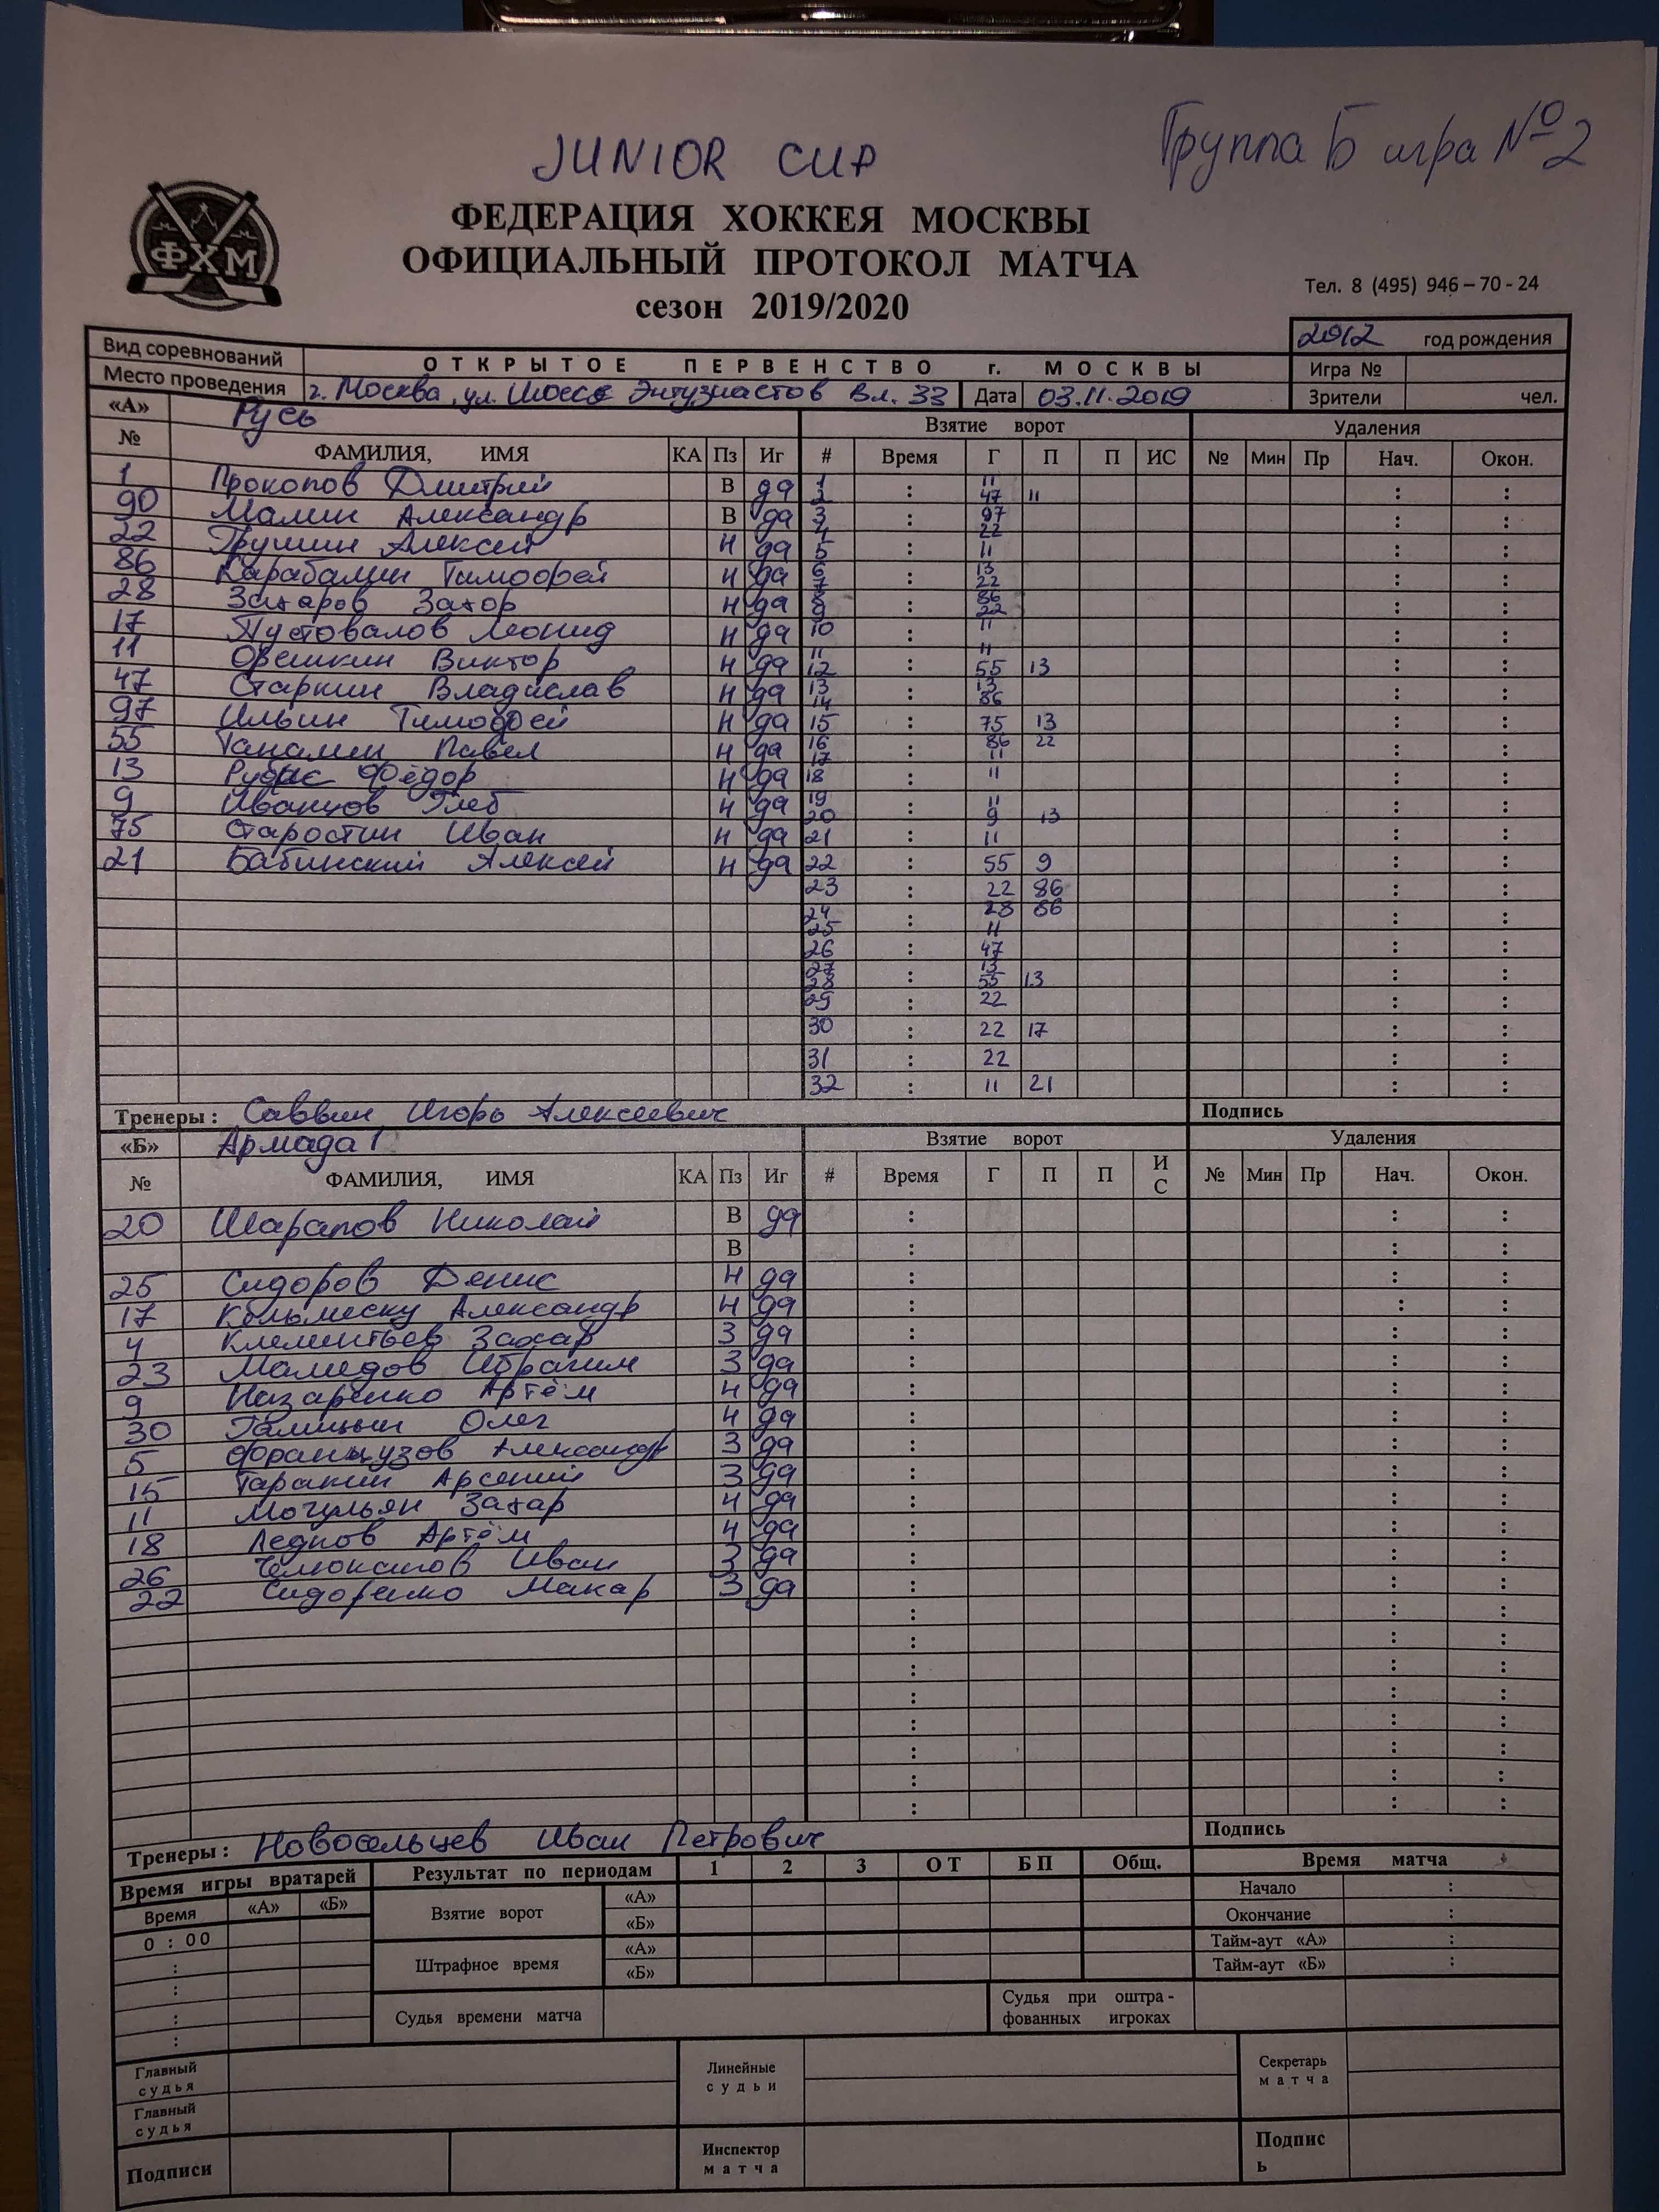 JUNIOR CUP
Группа Б игра №2
ФЕДЕРАЦИЯ ХОККЕЯ МОСКВЫ
ОФИЦИАЛЬНЫЙ ПРОТОКОЛ МАТЧА
сезон 2019/2020
ФХМ
Тел. 8 (495) 946 – 70 - 24
2012 год рождения
Вид соревнований ОТКРЫТОЕ ПЕРВЕНСТВО г. МОСКВЫ Игра №
Место проведения г. Москва, ул. Шоссе Энтузиастов вл. 33 Дата 03.11.2019 Зрители чел.
«А» Русь Взятие ворот Удаления
№ ФАМИЛИЯ, ИМЯ КА Пз Иг # Время Г П П ИС № Мин Пр Нач. Окон.
1 Прокопов Дмитрий В да 1 : 11 : :
2 47 11
90 Малин Александр В да 3 : 97 : :
4 22
22 Грушин Алексей Н да 5 : 11 : :
86 Карабалин Тимофей Н да 6 : 13 : :
7 22
28 Захаров Захар Н да 8 : 86 : :
9 22
17 Пустовалов Леонид Н да 10 : 11 : :
11 Орешкин Виктор Н да 11 : 11 : :
12 55 13
47 Старкин Владислав Н да 13 : 13 : :
14 86
97 Ильин Тимофей Н да 15 : 75 13 : :
55 Танамин Павел Н да 16 : 86 22 : :
17 11
13 Рубис Фёдор Н да 18 : 11 : :
9 Иванцов Глеб Н да 19 : 11 : :
20 9 13
75 Старостин Иван Н да 21 : 11 : :
21 Бабинский Алексей Н да 22 : 55 9 : :
23 : 22 86 : :
24 : 28 86 : :
25 11
26 : 47 : :
27 : 13 : :
28 55 13
29 : 22 : :
30 : 22 17 : :
31 : 22 : :
32 : 11 21 : :
Тренеры : Саввин Игорь Алексеевич Подпись
«Б» Армада 1 Взятие ворот Удаления
№ ФАМИЛИЯ, ИМЯ КА Пз Иг # Время Г П П ИС № Мин Пр Нач. Окон.
20 Шарапов Николай В да : : :
В : : :
25 Сидоров Денис Н да : : :
17 Александр Н да : : :
4 Клементьев Захар З да : : :
23 Мамедов Ибрагим З да : : :
9 Назаренко Артём Н да : : :
30 Галицын Олег Н да : : :
5 Французов Александр З да : : :
15 Таракин Арсений З да : : :
11 Могульян Захар Н да : : :
18 Леднов Артём Н да : : :
26 Иван З да : : :
22 Сидоренко Макар З да : : :
: : :
: : :
: : :
: : :
: : :
: : :
: : :
: : :
Тренеры : Новосельцев Иван Петрович Подпись
Время игры вратарей Результат по периодам 1 2 3 ОТ БП Общ. Время матча
Время «А» «Б» Взятие ворот «А» Начало :
0 : 00 «Б» Окончание :
: Штрафное время «А» Тайм-аут «А» :
: «Б» Тайм-аут «Б» :
: Судья времени матча Судья при оштра-
: фованных игроках
Главный судья Линейные судьи Секретарь матча
Главный судья
Подписи Инспектор матча Подпис
ь